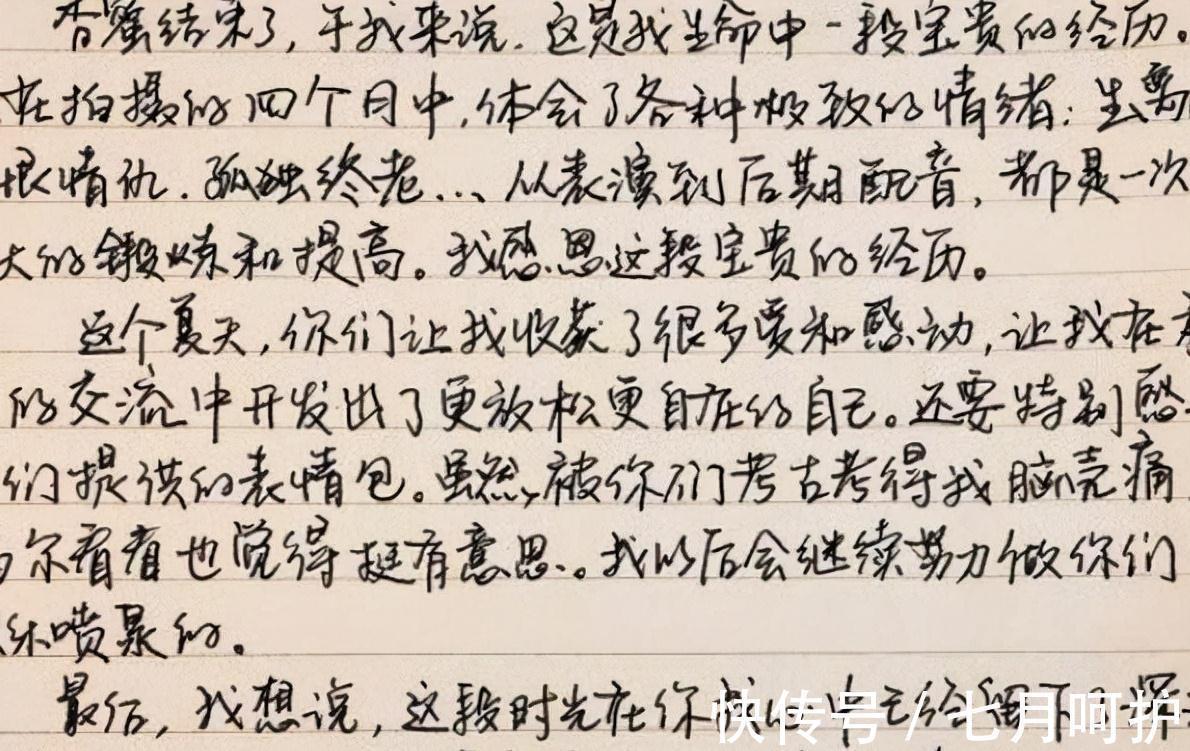 香蜜结束了,于我来说.这是我生命中一段宝贵的经历。
在拍摄的四个月中,体会了各种极致的情绪:生离
恨情仇.孤独终老...从表演到后期配音,都是一次
大的锻炼和提高。我感恩这段宝贵的经历。
这个夏天,你们让我收获了很多爱和感动,让我在
的交流中开发出了更放松更自在的自己。还要特别感
们提供的表情包。虽然被你们考古考得我脑壳痛
尔看看也觉得挺有意思。我以后会继续努力做你们
喷泉的。
最后,我想说,这段时光在你我 中已经留下了深
快传号 / 七月呵护